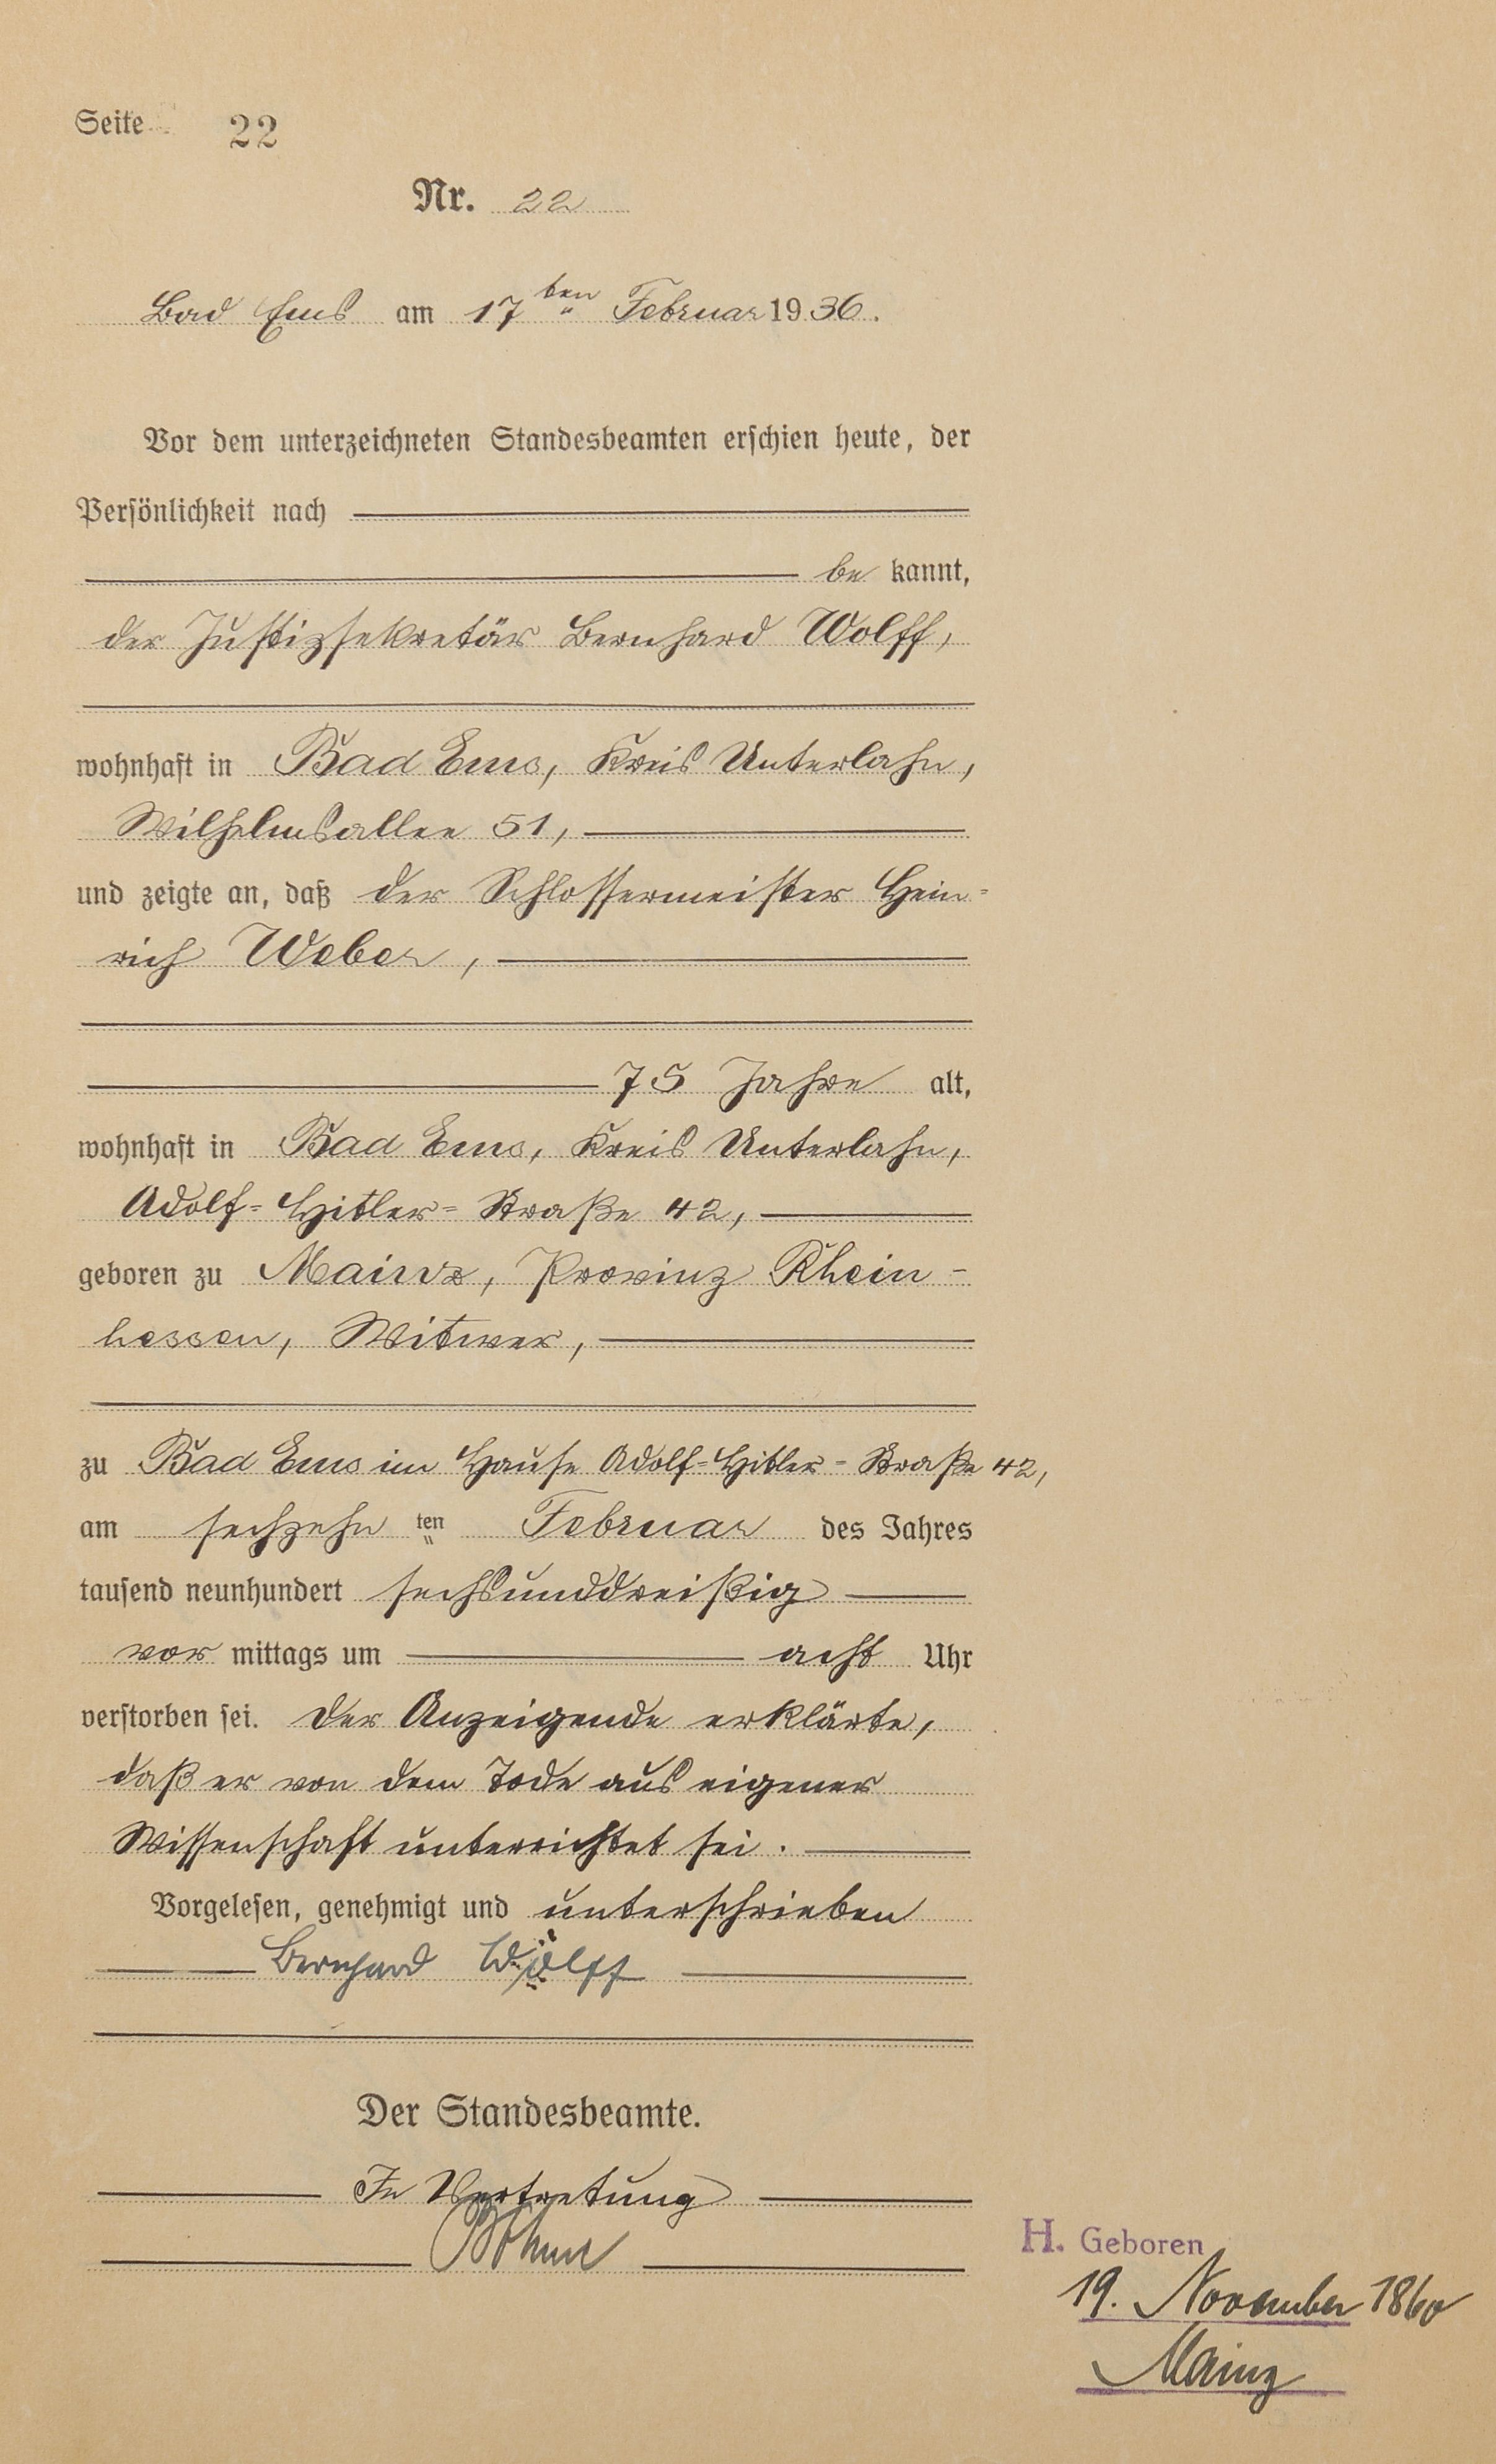 Seite 22
Nr. 22
Bad Ems am 17ten Februar 1936.
Vor dem unterzeichneten Standesbeamten erschien heute, der
Persönlichkeit nach
be kannt,
der Justizsekretär Bernhard Wolff,
wohnhaft in Bad Ems, Kreis Unterlahn,
Wilhelmsallee 51,
und zeigte an, daß der Schlossermeister Hein-
rich Weber,
75 Jahre alt,
wohnhaft in Bad Ems, Kreis Unterlahn,
Adolf-Hitler-Straße 42,
geboren zu Mainz, Provinz Rhein-
hessen, Witwer,
zu Bad Ems im Hause Adolf-Hitler-Straße 42,
am sechzehn ten Februar des Jahres
tausend neunhundert sechsunddreißig
vor mittags um acht Uhr
verstorben sei. Der Anzeigende erklärte,
daß er von dem Tode aus eigener
Wissenschaft unterrichtet sei.
Vorgelesen, genehmigt und unterschrieben
Bernhard Wolff
Der Standesbeamte.
In Vertretung
H. Geboren
19. November 1860
Mainz